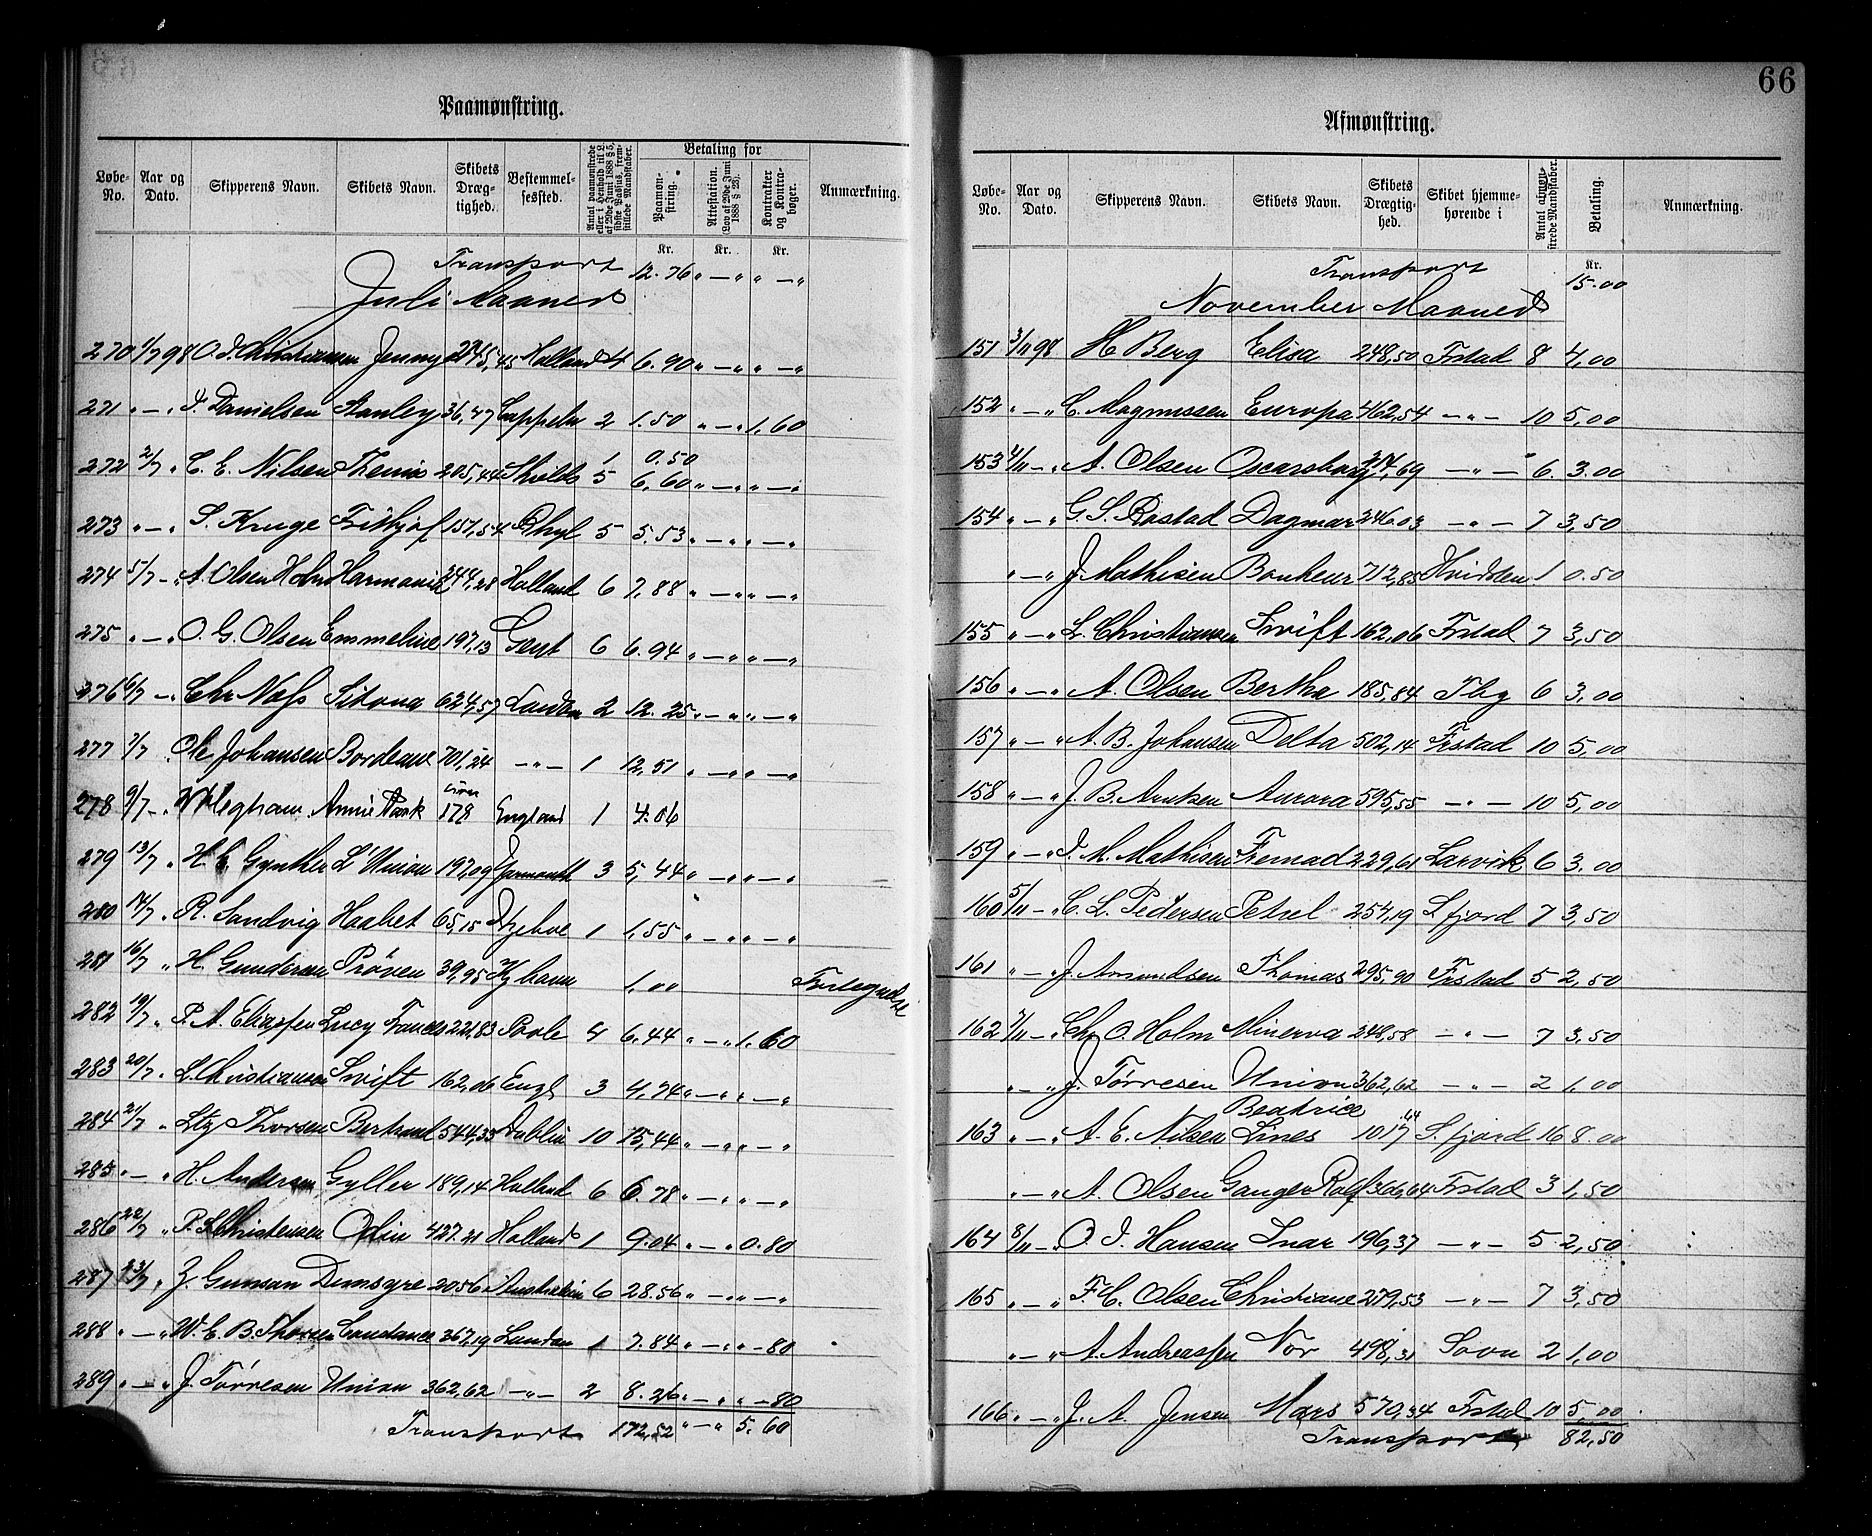 66
Paamønstring.
Løbe-No. Aar og Dato. Skipperens Navn. Skibets Navn. Skibets Dræg-tighed. Bestemmel-sessted. Antal paamønstrede eller i Henhold til L. af 29de Juni 1888 § 5, sidste Passus, frem-stillede Mandskaber. Betaling for Paamøn-string. Attestation. (Lov af 29de Juni 1888 § 23). Kontrakter og Kontra-bøger. Anmærkning.
Kr. Kr. Kr.
Transport 12.76 " — " " — "
Juli Maaned
270 1/7 98 O. J. Christiansen Jenny 245,45 Holland 4 6.90 " — " " — "
271 " — " J. Danielsen Stanley 36,47 Cappeln 2 1.50 " — " 1,60
1 0.50
272 2/7 " C. E. Nilsen Themis 205,44 Skilds 5 6,60 " — " " — "
273 " — " S. Kruge Frithjof 151,54 Rhyl 5 5.53 " — " " — "
274 5/7 — " A. Olsen Holm Harmonie 244,28 Holland 6 7,88 " — " " — "
275 " — " O. G. Olsen Emmeline 197,13 Gent 6 6.94 " — " " — "
276 6/7 — " Chr Næss Sitona 624,57 London 2 12.25 " — " " — "
277 7/7 " Ole Johansen Bordeaux 701,24 — " — 1 12,51 " — " " — "
278 9/7 — " Annie Park 178 England 1 4.06
279 13/7 " H. C. Gynther L Union 197,09 Jarmouth 3 5,44 " — " " — "
280 14/7 " R. Sandvig Haabet 65,15 1 1,55 " — " " — "
281 16/7 " H. Gundersen Prøven 39,95 Kjhavn 1,00
282 19/7 " P. A. Eliassen Lucy 221,83 Poole 4 6,44 " — " 1.60
283 20/7 " L. Christiansen Swift 162,06 Engl 3 4,74 " — " " — "
284 21/7 " Ltz Thorsen Bertrand 544,33 Dublin 10 15,44 " — " " — "
285 " — " H. Andersen Gyller 189,14 Holland 6 6.78 " — " " — "
286 22/7 " P. Christensen Odin 427.21 Holland 1 9.04 " — " 0.80
287 23/7 " Z. Gunson Dumsyre 2056 Australien 6 28.56 " — " " — "
288 " — " W. C. B. Thorsen Constance 367,19 London 1 7.84 " — " " — 80
289 " — " J. Tørresen Union 362,62 — " — 2 8.26 " — " " — 80
Transport 172,52 " — " 5.60
Afmønstring.
Løbe-No. Aar og Dato. Skipperens Navn. Skibets Navn. Skibets Drægtig-hed. Skibet hjemme-hørende i Antal afmøn-strede Mandskaber. Betaling. Anmærkning.
Kr.
Transport 15.00
November Maaned
151 3/11 98 H Berg Elisa 248,50 Frstad 8 4,00
152 " — " C. Magnussen Europa 462,54 — " — 10 5,00
153 4/11 — " A. Olsen Oscarsborg 317,69 — " — 6 3.00
154 " — " G. S. Rostad Dagmar 246.03 — " — 7 3,50
" — " J. Mathisen Bonheur 712,85 Hvidsten 1 0.50
155 " — " L. Christiansen Swift 162,06 Frstad 7 3,50
156 " — " A. Olsen Bertha 185,84 Tbg 6 3,00
157 " — " A. B. Johansen Delta 502,14 Frstad 10 5,00
158 " — " J. B. Arntsen Aurora 595,55 — " — 10 5,00
159 " — " J. M. Mathisen Fremad 229,61 Larvik 6 3.00
160 5/11 — " C. L. Pedersen Petrel 254,19 S. fjord 7 3,50
161 " — " J. Amundsen Thomas 295,90 Frstad 5 2,50
162 7/11 — " Chr O. Holm Minerva 248,58 — " — 7 3,50
" — " J. Tørresen Union 362,62 — " — 2 1.00
Beatrice
163 " — " A. E. Nilsen Lines 1017 S. fjord 16 8.00
" — " A. Olsen Ganger Rolf 366,64 Frstad 3 1,50
164 8/11 — " O. J. Hansen Snar 196,37 — " — 5 2,50
165 " — " F. C. Olsen Christiane 279,53 — " — 7 3,50
" — " A. Andreassen Nor 498,31 Sovn 2 1,00
166 " — " J. A. Jensen Mars 570,34 Frstad 10 5,00
Transport 82,50